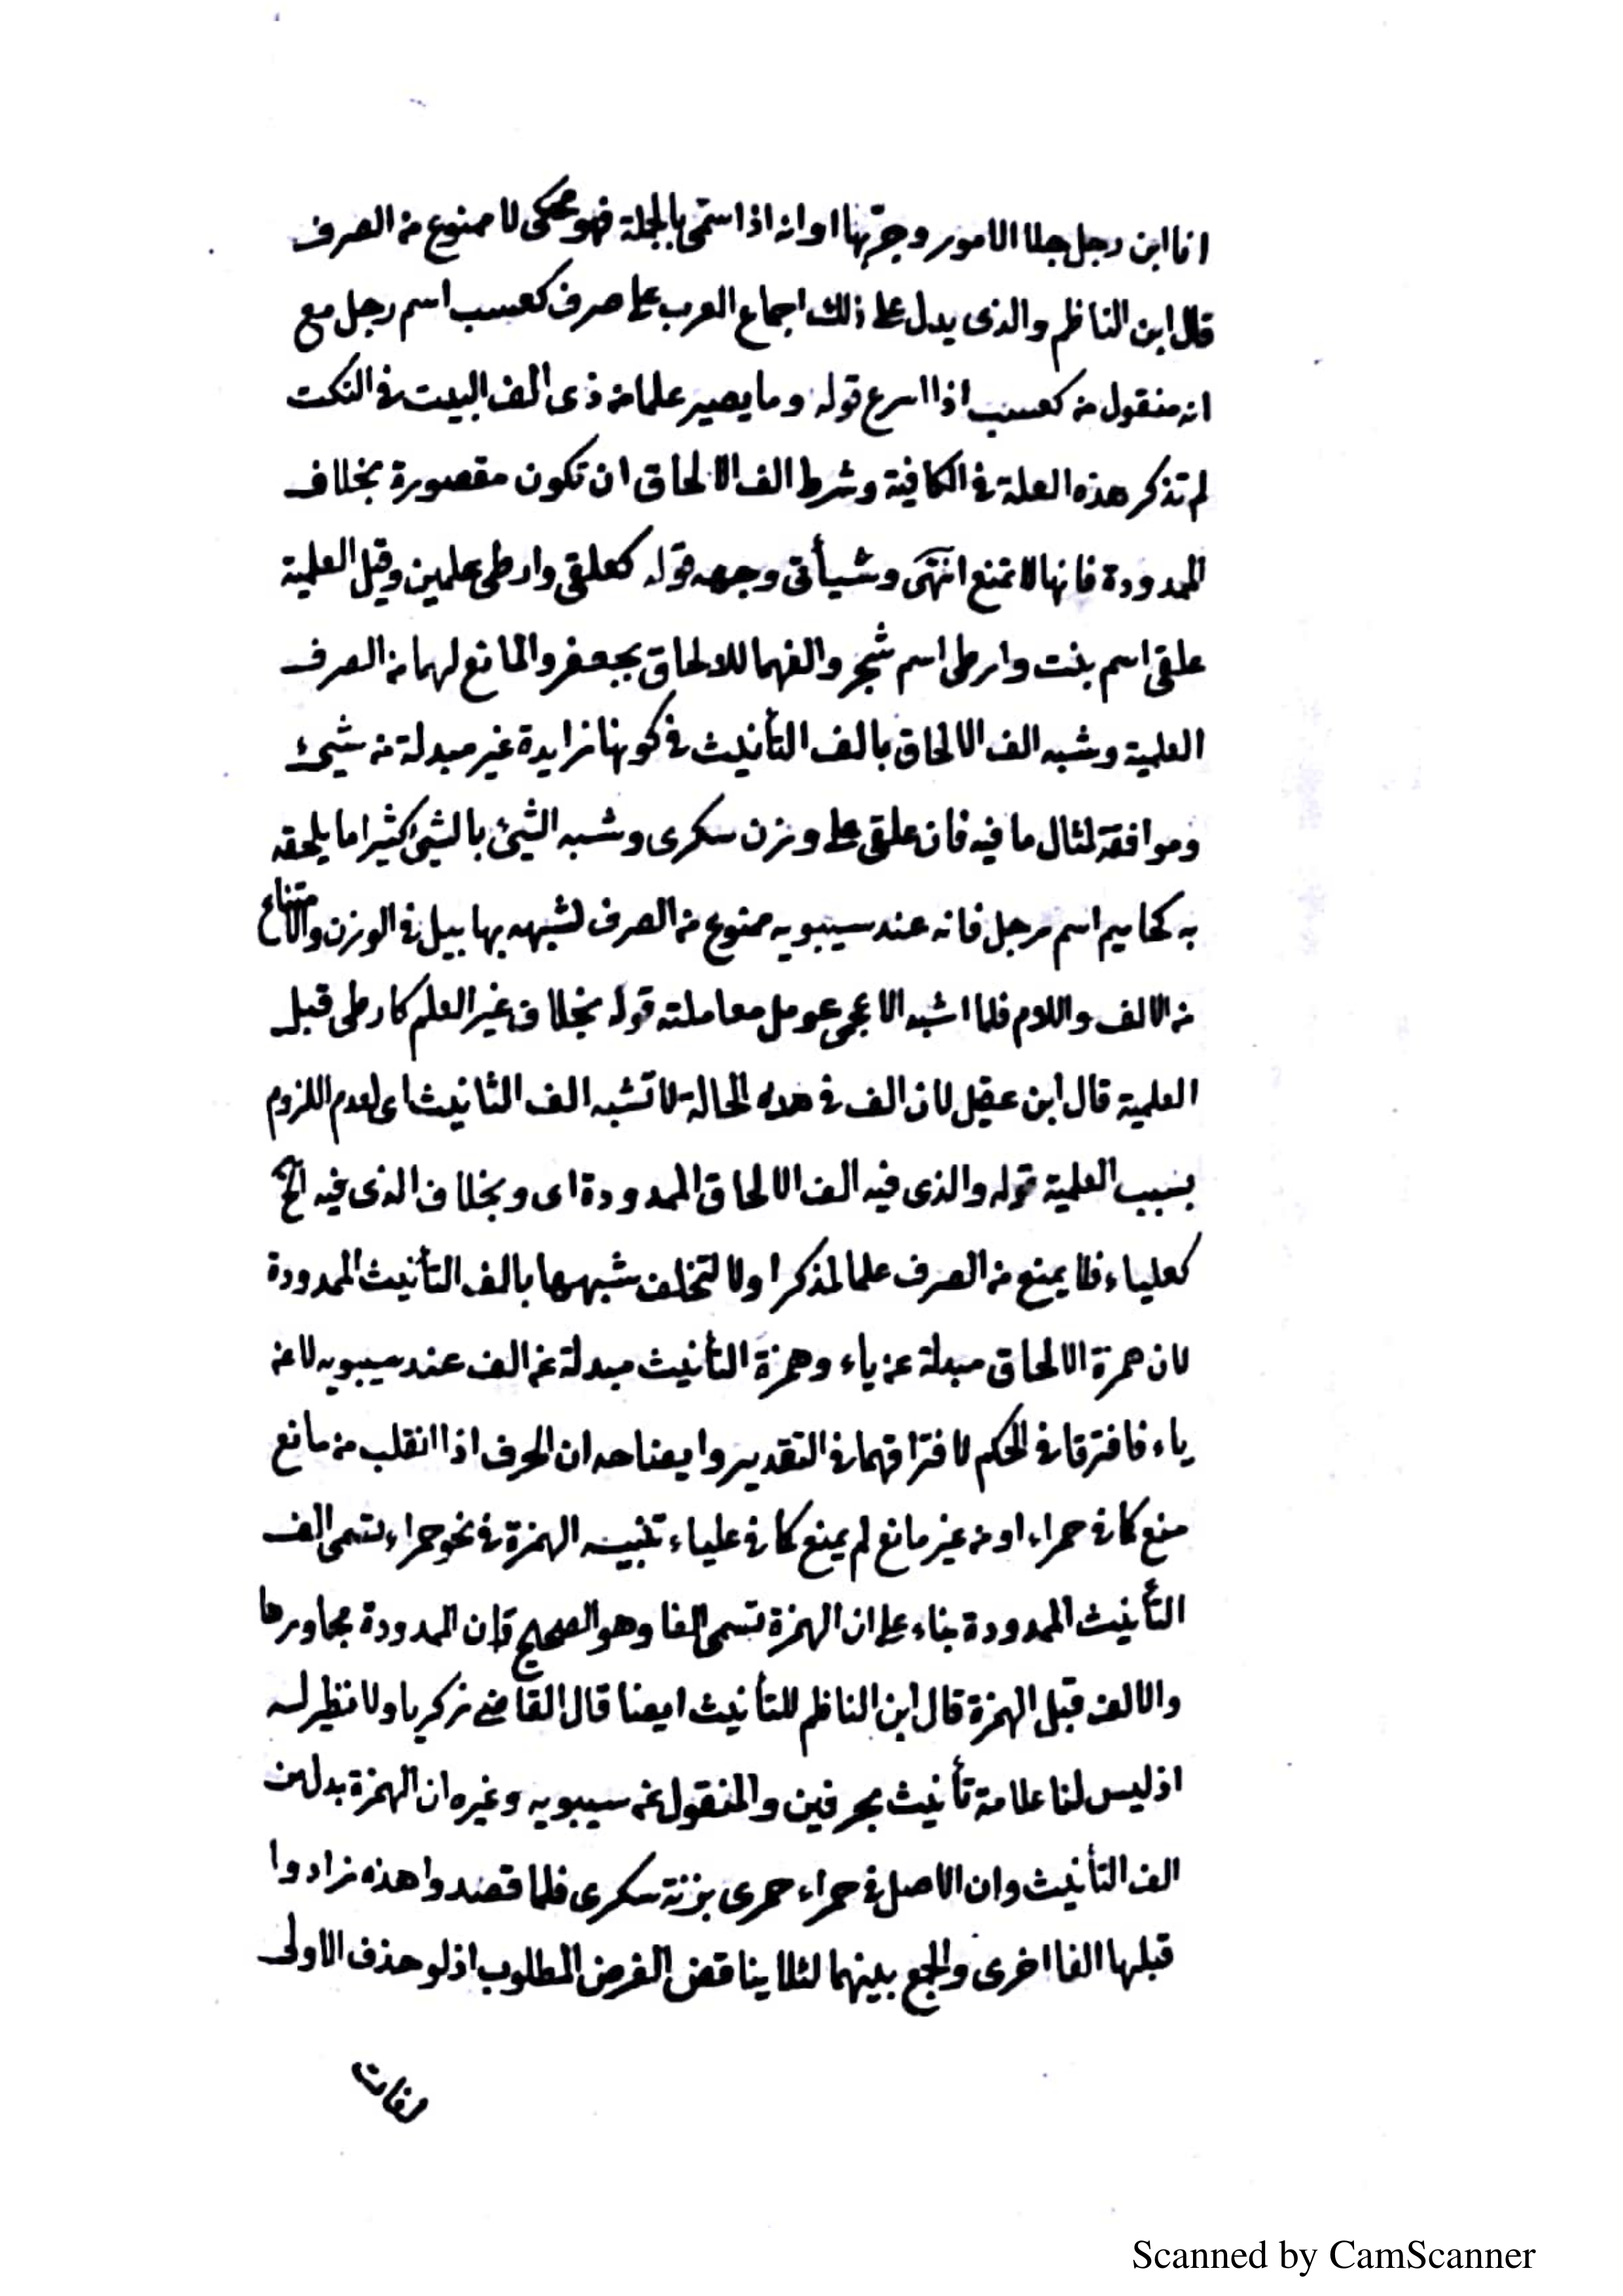 انا ابن رجل جلا الامور وجرّبها او انه اذا سمّى بالجملة فهو محكى لا ممنوع من الصرف
قال ابن الناظم والذى يدل على ذلك اجماع العرب على صرف كعسب اسم رجل مع
انه منقول من كعسب اذا اسرع قوله وما يصير علما من ذى الف البيت فى النكت
لم تذكر هذه العلة فى الكافية وشرط الف الالحاق ان تكون مقصورة بخلاف
الممدودة فانها لا تمنع انتهى وسيأتى وجهه قوله كعلقى وارطى علمين وقبل العلمية
علقى اسم بنت وارطى اسم شجر والفهما للالحاق بجعفر والمانع لهما من الصرف
العلمية وشبه الف الالحاق بالف التأنيث فى كونها زايدة غير مبدلة من شيئ
وموافقة لمثال ما فيه فان علقى على وزن سكرى وشبه الشيئ بالشيئ كثيرا ما يلحقه
به كحاميم اسم رجل فانه عند سيبويه ممنوع من الصرف لشبهه بهابيل فى الوزن والامتناع
من الالف واللام فلما اشبه الاعجمى عومل معاملته قوله بخلاف غير العلم كارطى قبل
العلمية قال ابن عقيل لان الف فى هذه الحالة لا تشبه الف التانيث اى لعدم اللزوم
بسبب العلمية قوله والذى فيه الف الالحاق الممدودة اى وبخلاف الذى فيه الخ
كعلياء فلا يمنع من الصرف علما لمذكر اولا لتخلف شبهها بالف التأنيث الممدودة
لان همزة الالحاق مبدلة عن ياء وهمزة التأنيث مبدلة عن الف عند سيبويه لا عن
ياء فافترقا فى الحكم لافتراقهما فى التقدير وايضاحه ان الحرف اذا انقلب من مانع
منع كما فى حمراء او من غير مانع لم يمنع كما فى علياء تنبيه الهمزة فى نحو حمراء تسمى الف
التأنيث الممدودة بناء على ان الهمزة تسمى الفا وهو الصحيح فإن الممدودة مجاورها
والالف قبل الهمزة قال ابن الناظم للتأنيث ايضا قال القاضى زكريا ولا نظير له
اذ ليس لنا علامة تأنيث بحرفين والمنقول عن سيبويه وغيره ان الهمزة بدل من
الف التأنيث وان الاصل فى حمراء حمرى بزنة سكرى فلما قصدوا هذه زادوا
قبلها الفا اخرى والجمع بينهما لئلا يناقض الغرض المطلوب اذ لو حذف الاولى
لفات
Scanned by CamScanner